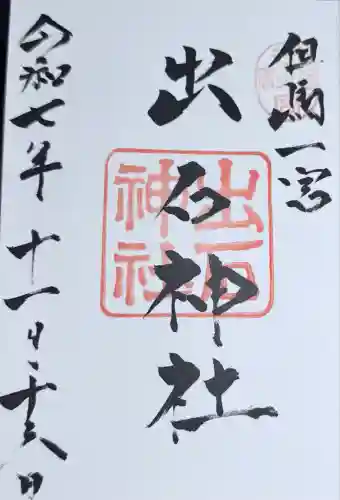 但馬一宮
出石神社
出石
神社
令和七年十一月二十三日